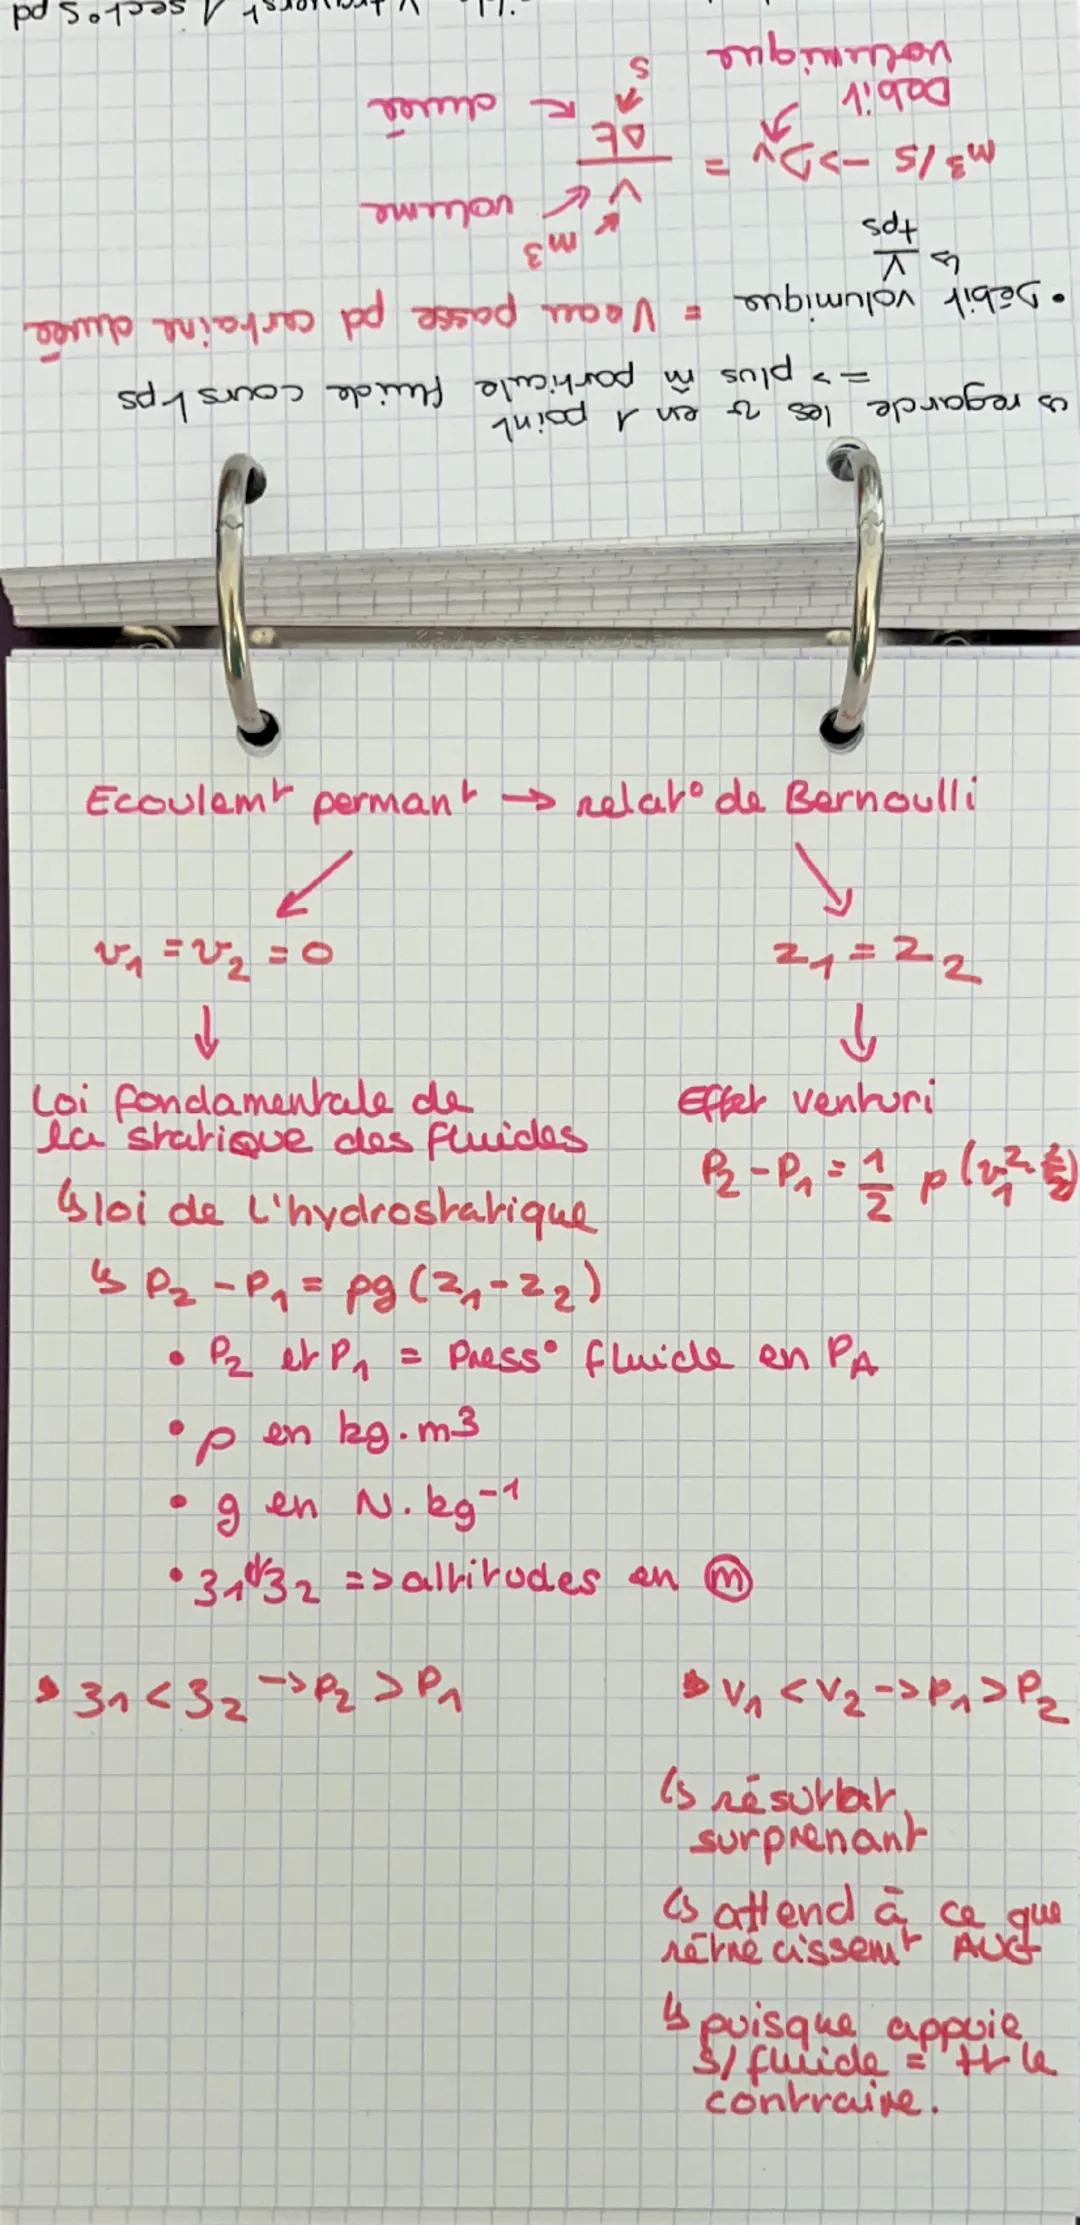 ↳ regarde les v en 1 point
=> plus m̂ particule fluide cours tps
• Débit volumique = V eau passe pd certaine durée
↳ V/tps
m³/s -> Dv = V/Δt
m³
volume
durée
s
Débit volumique
Ecoulemt permant → relat° de Bernoulli
v₁ = v₂ = 0
z₁ = z₂
↓ ↓
Loi fondamentale de
la statique des fluides
↳ loi de l'hydrostatique
↳ P₂ - P₁ = ρg (z₁ - z₂)
• P₂ et P₁ = Press° fluide en PA
• ρ en kg.m3
• g en N.kg⁻¹
• z₁ et z₂ => altitudes en m
z₁ < z₂ -> P₂ > P₁
Effet venturi
P₂ - P₁ = 1/2 ρ (v₁² -
V₁ < V₂ -> P₁ > P₂
↳ résultat
surprenant
↳ attend à ce que
rétrécissemt AUG
↳ puisque appuie
s/ fluide = tt le
contraire.